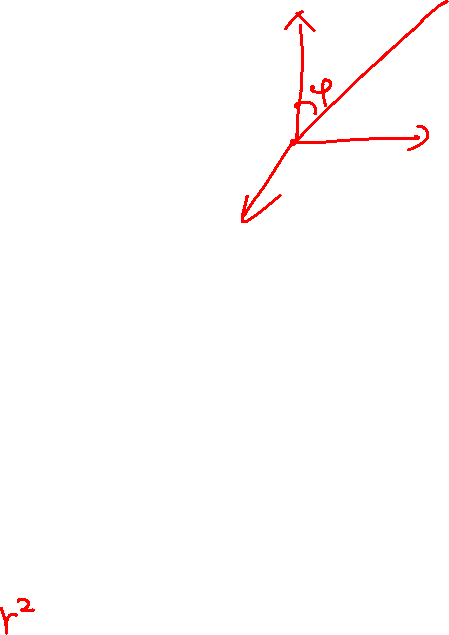 φ
r²